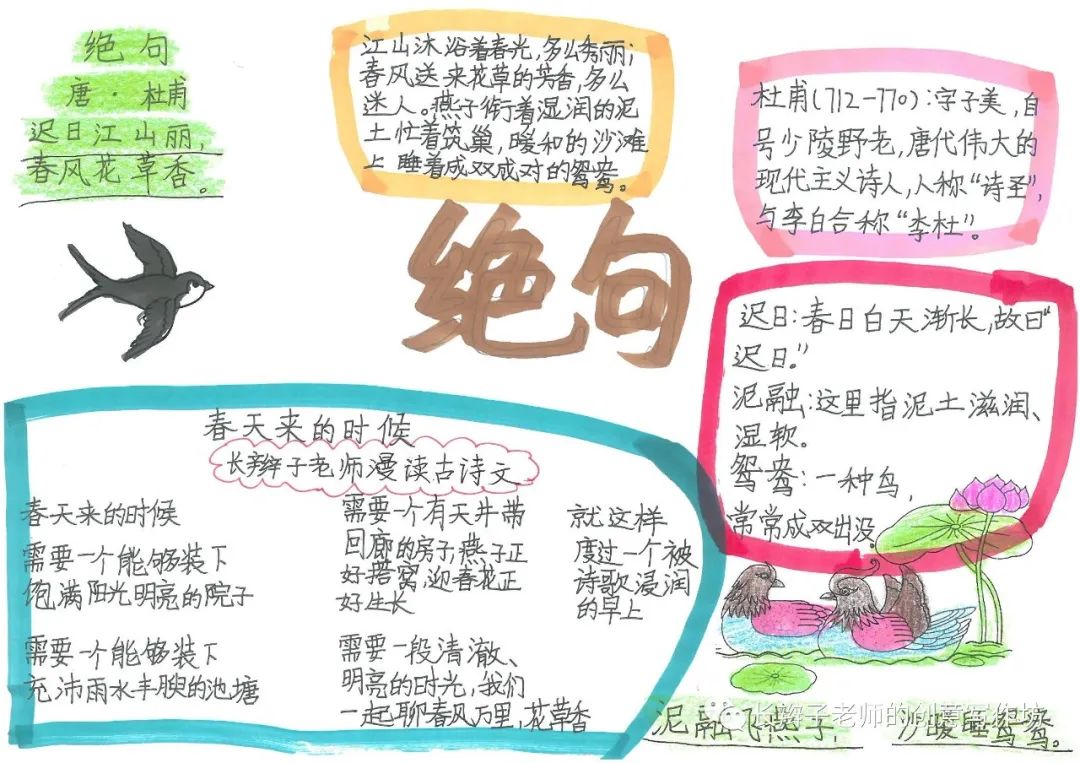 绝句
唐·杜甫
迟日江山丽，
春风花草香。
江山沐浴着春光，多么秀丽；
春风送来花草的芳香，多么
迷人。燕子衔着湿润的泥
土忙着筑巢，暖和的沙滩
上睡着成双成对的鸳鸯。
杜甫(712-770)：字子美，自
号少陵野老，唐代伟大的
现代主义诗人，人称“诗圣”，
与李白合称“李杜”。
绝句
迟日：春日白天渐长，故曰“
迟日。”
泥融：这里指泥土滋润、
湿软。
鸳鸯：一种鸟，
常常成双出没。
春天来的时候
长辫子老师漫读古诗文
春天来的时候
需要一个能够装下
饱满阳光明亮的院子
需要一个能够装下
充沛雨水丰腴的池塘
需要一个有天井带
回廊的房子，燕子正
好搭窝，迎春花正
好生长
需要一段清澈、
明亮的时光，我们
一起聊春风万里，花草香
就这样
度过一个被
诗歌浸润
的早上
泥融飞燕子，沙暖睡鸳鸯。
长辫子老师的创意写作坊